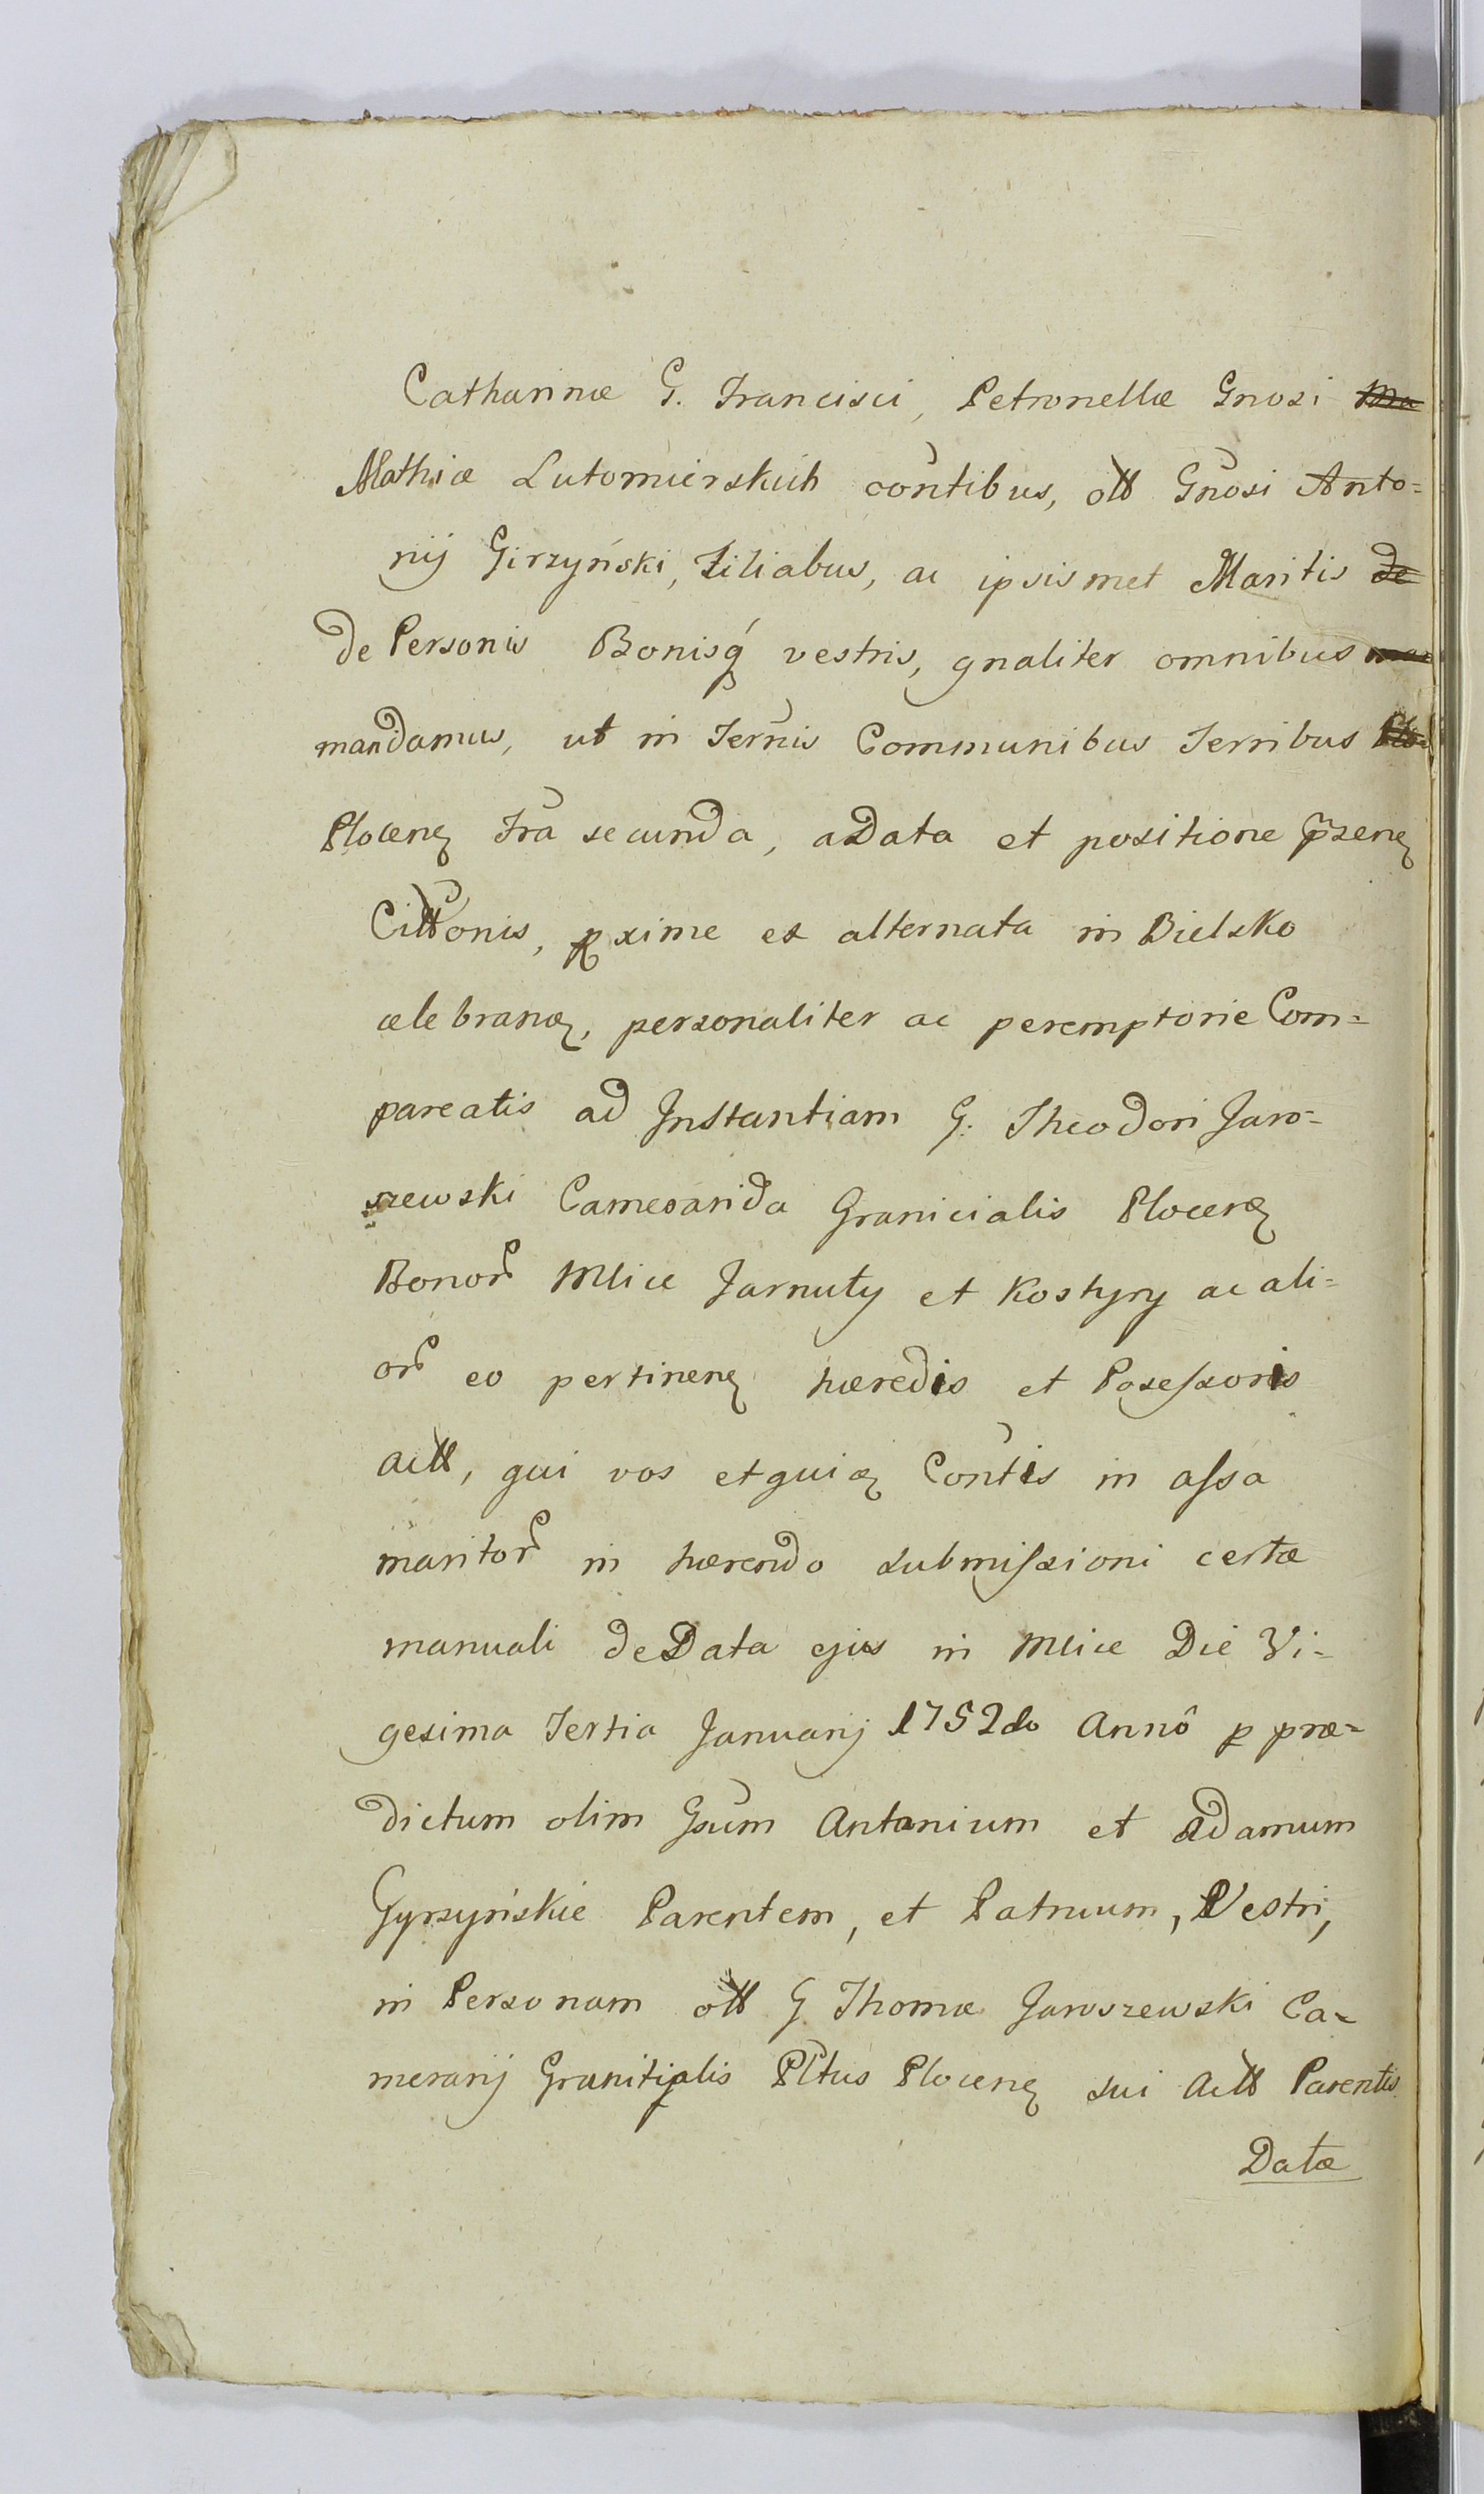 Catharinæ G. Francisci, Petronellæ Gnosi Ma
Mathiæ Lutomierskich cõntibus, olt Gnõsi Anto=
nij Girzyński, Filiabus, ac ipsismet Maritis de
de Personis Bonisq́ vestris, gnaliter omnibus
mandamus, ut in Ternis Communibus Terribus Plo=
Plocen Fra secunda, a Data et positione p̃rsen
Cittonis, pxime ex alternata in Bielsko
celebran, personaliter ac peremptorie Com=
pareatis ad Instantiam G. Theodori Jaro=
szewski Granicialis Plocen
Bonor Mlice Jarnuty et Kostyry ac ali=
or eo pertinen hæredis et Posessoris
actt, qui vos Contis in assa
maritor in hærendo submissioni certæ
manuali de Data ejus in Mlice Die Vi=
gesima Tertia Januarij 1752do Annô p præ=
dictum olim Gsum Antonium et Adamum
Gyrzyńskie Parentem, et Patruum, Vestri,
in Personam olt G Thomæ Jaroszewski Ca=
merarij Granitialis Pltus Plocen sui Actt Parentis
Datæ